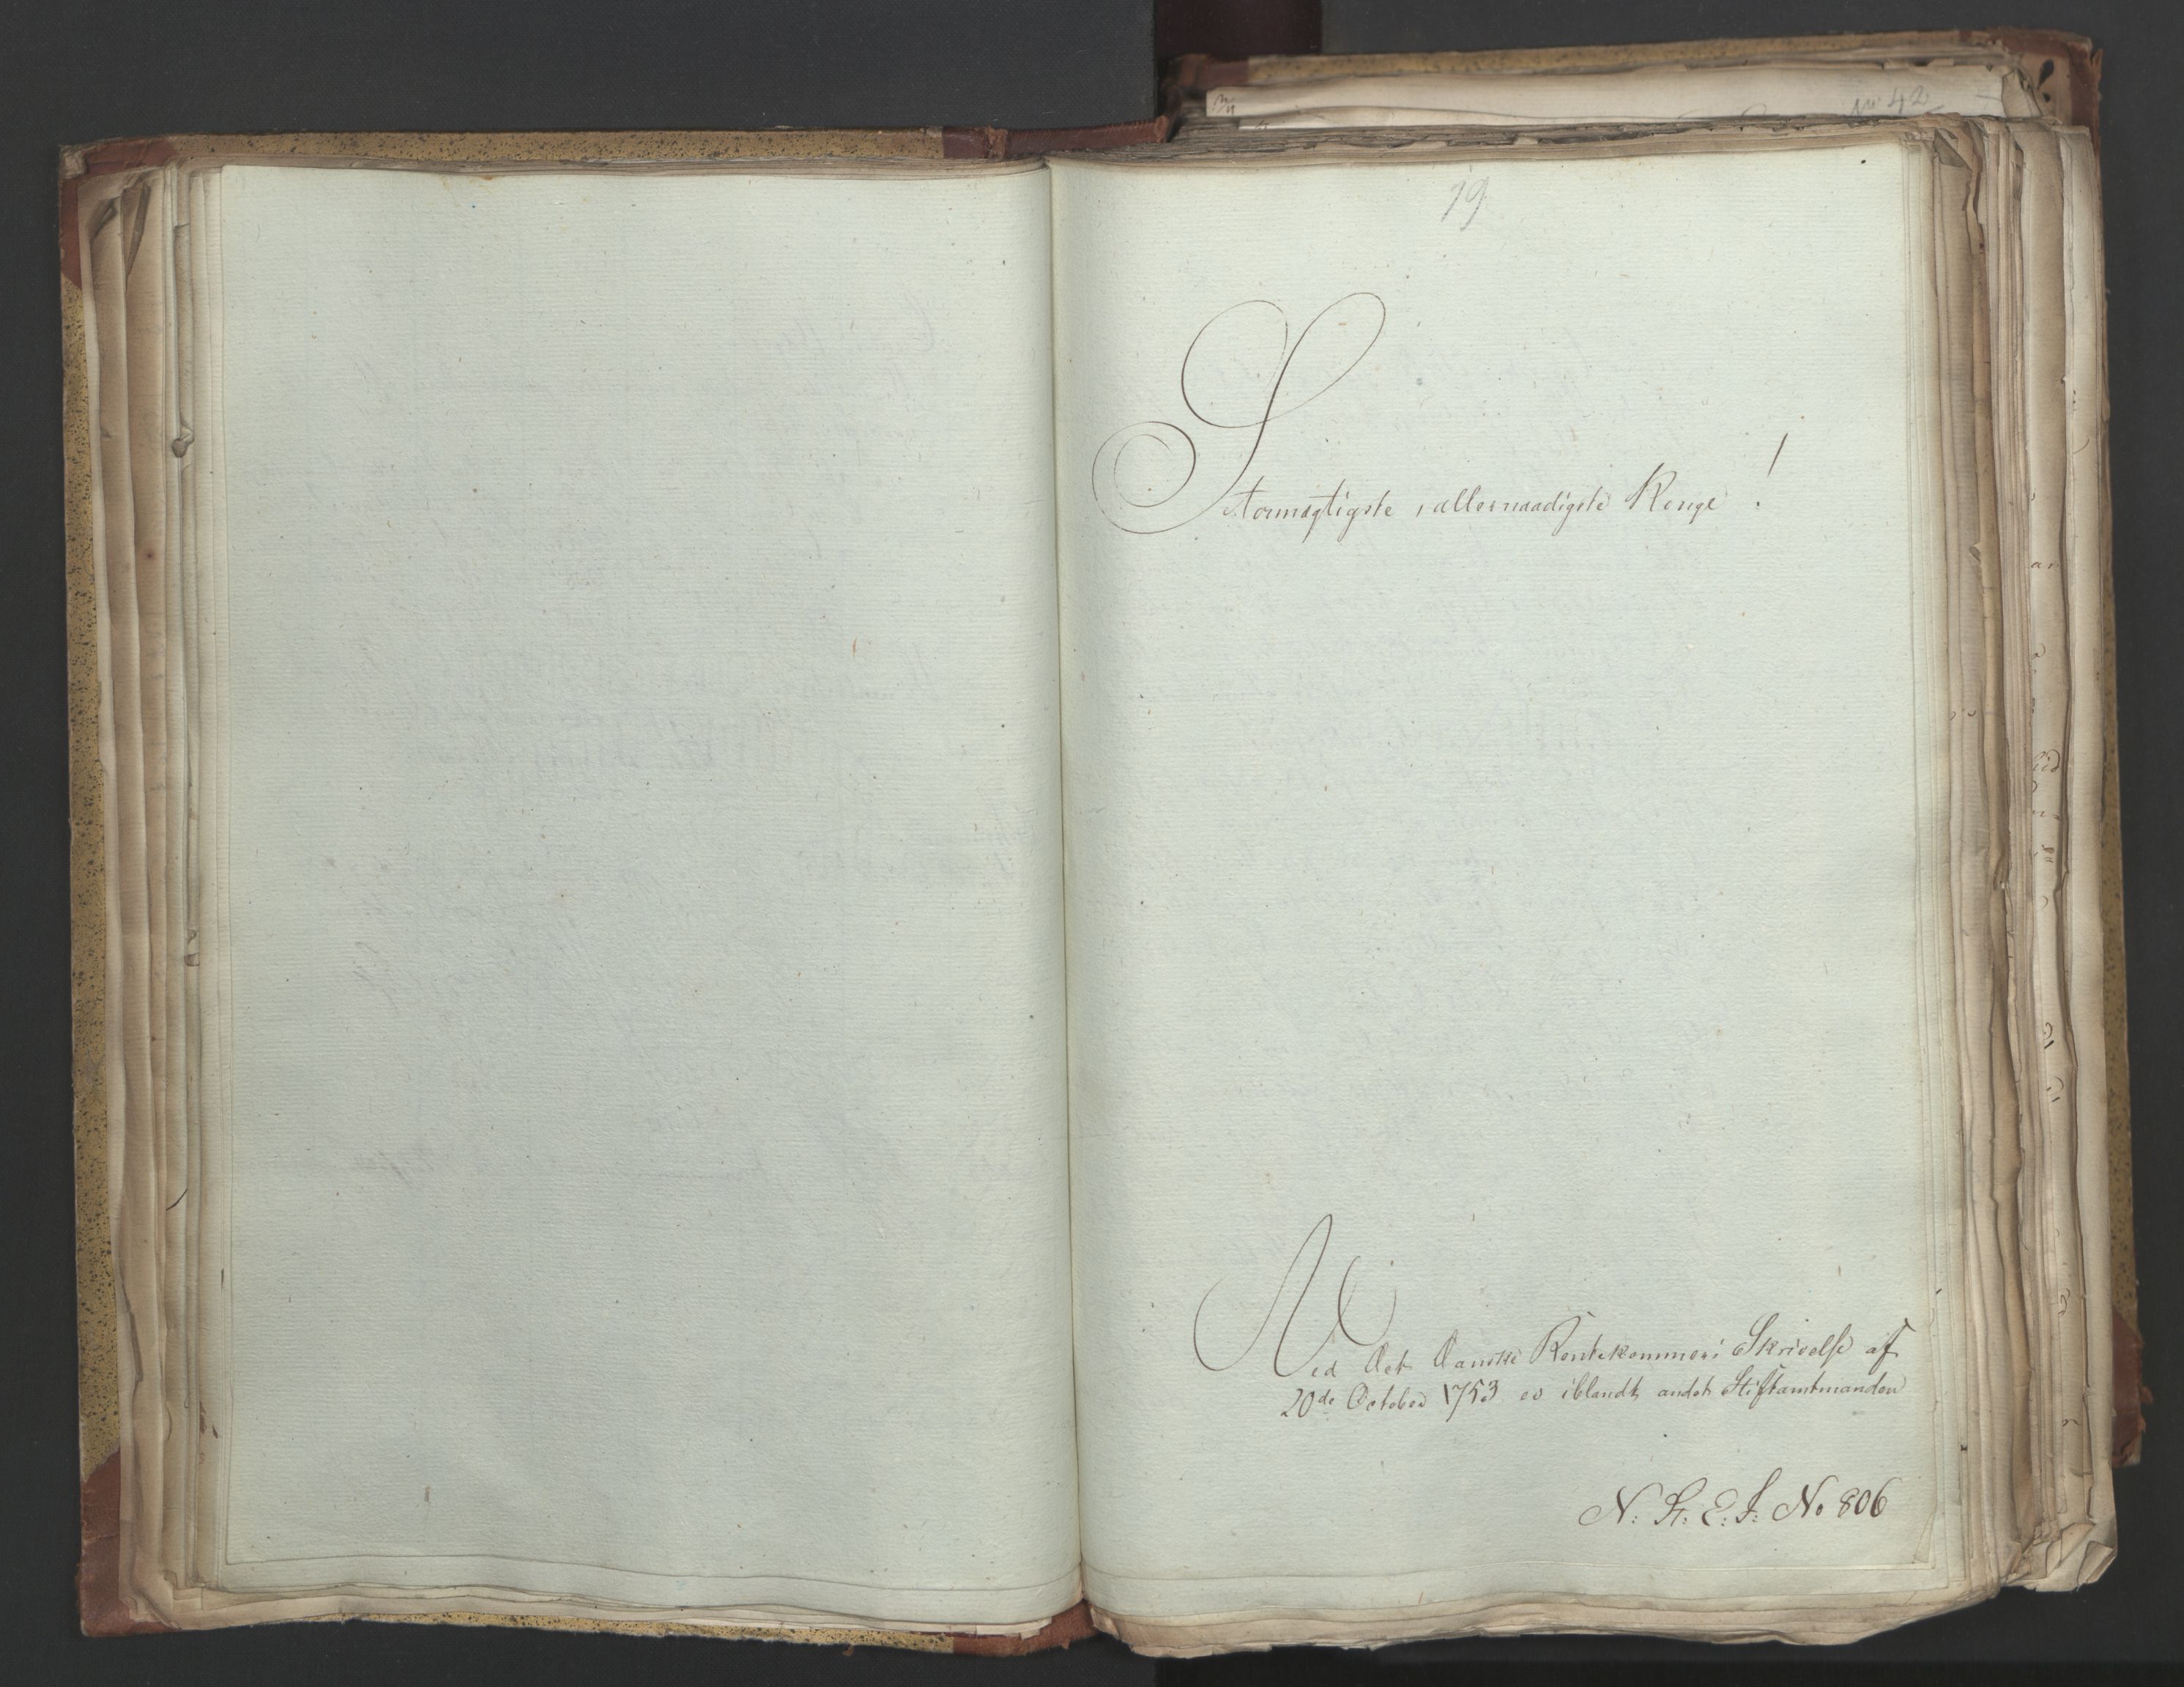 No 42
19
Stormægtigste, allernaadigste Konge!
Ved Det Danske Rentekammers Skrivelse af
20de October 1753 er iblandt andet Stiftamtmanden
N: St: E: J: No 806